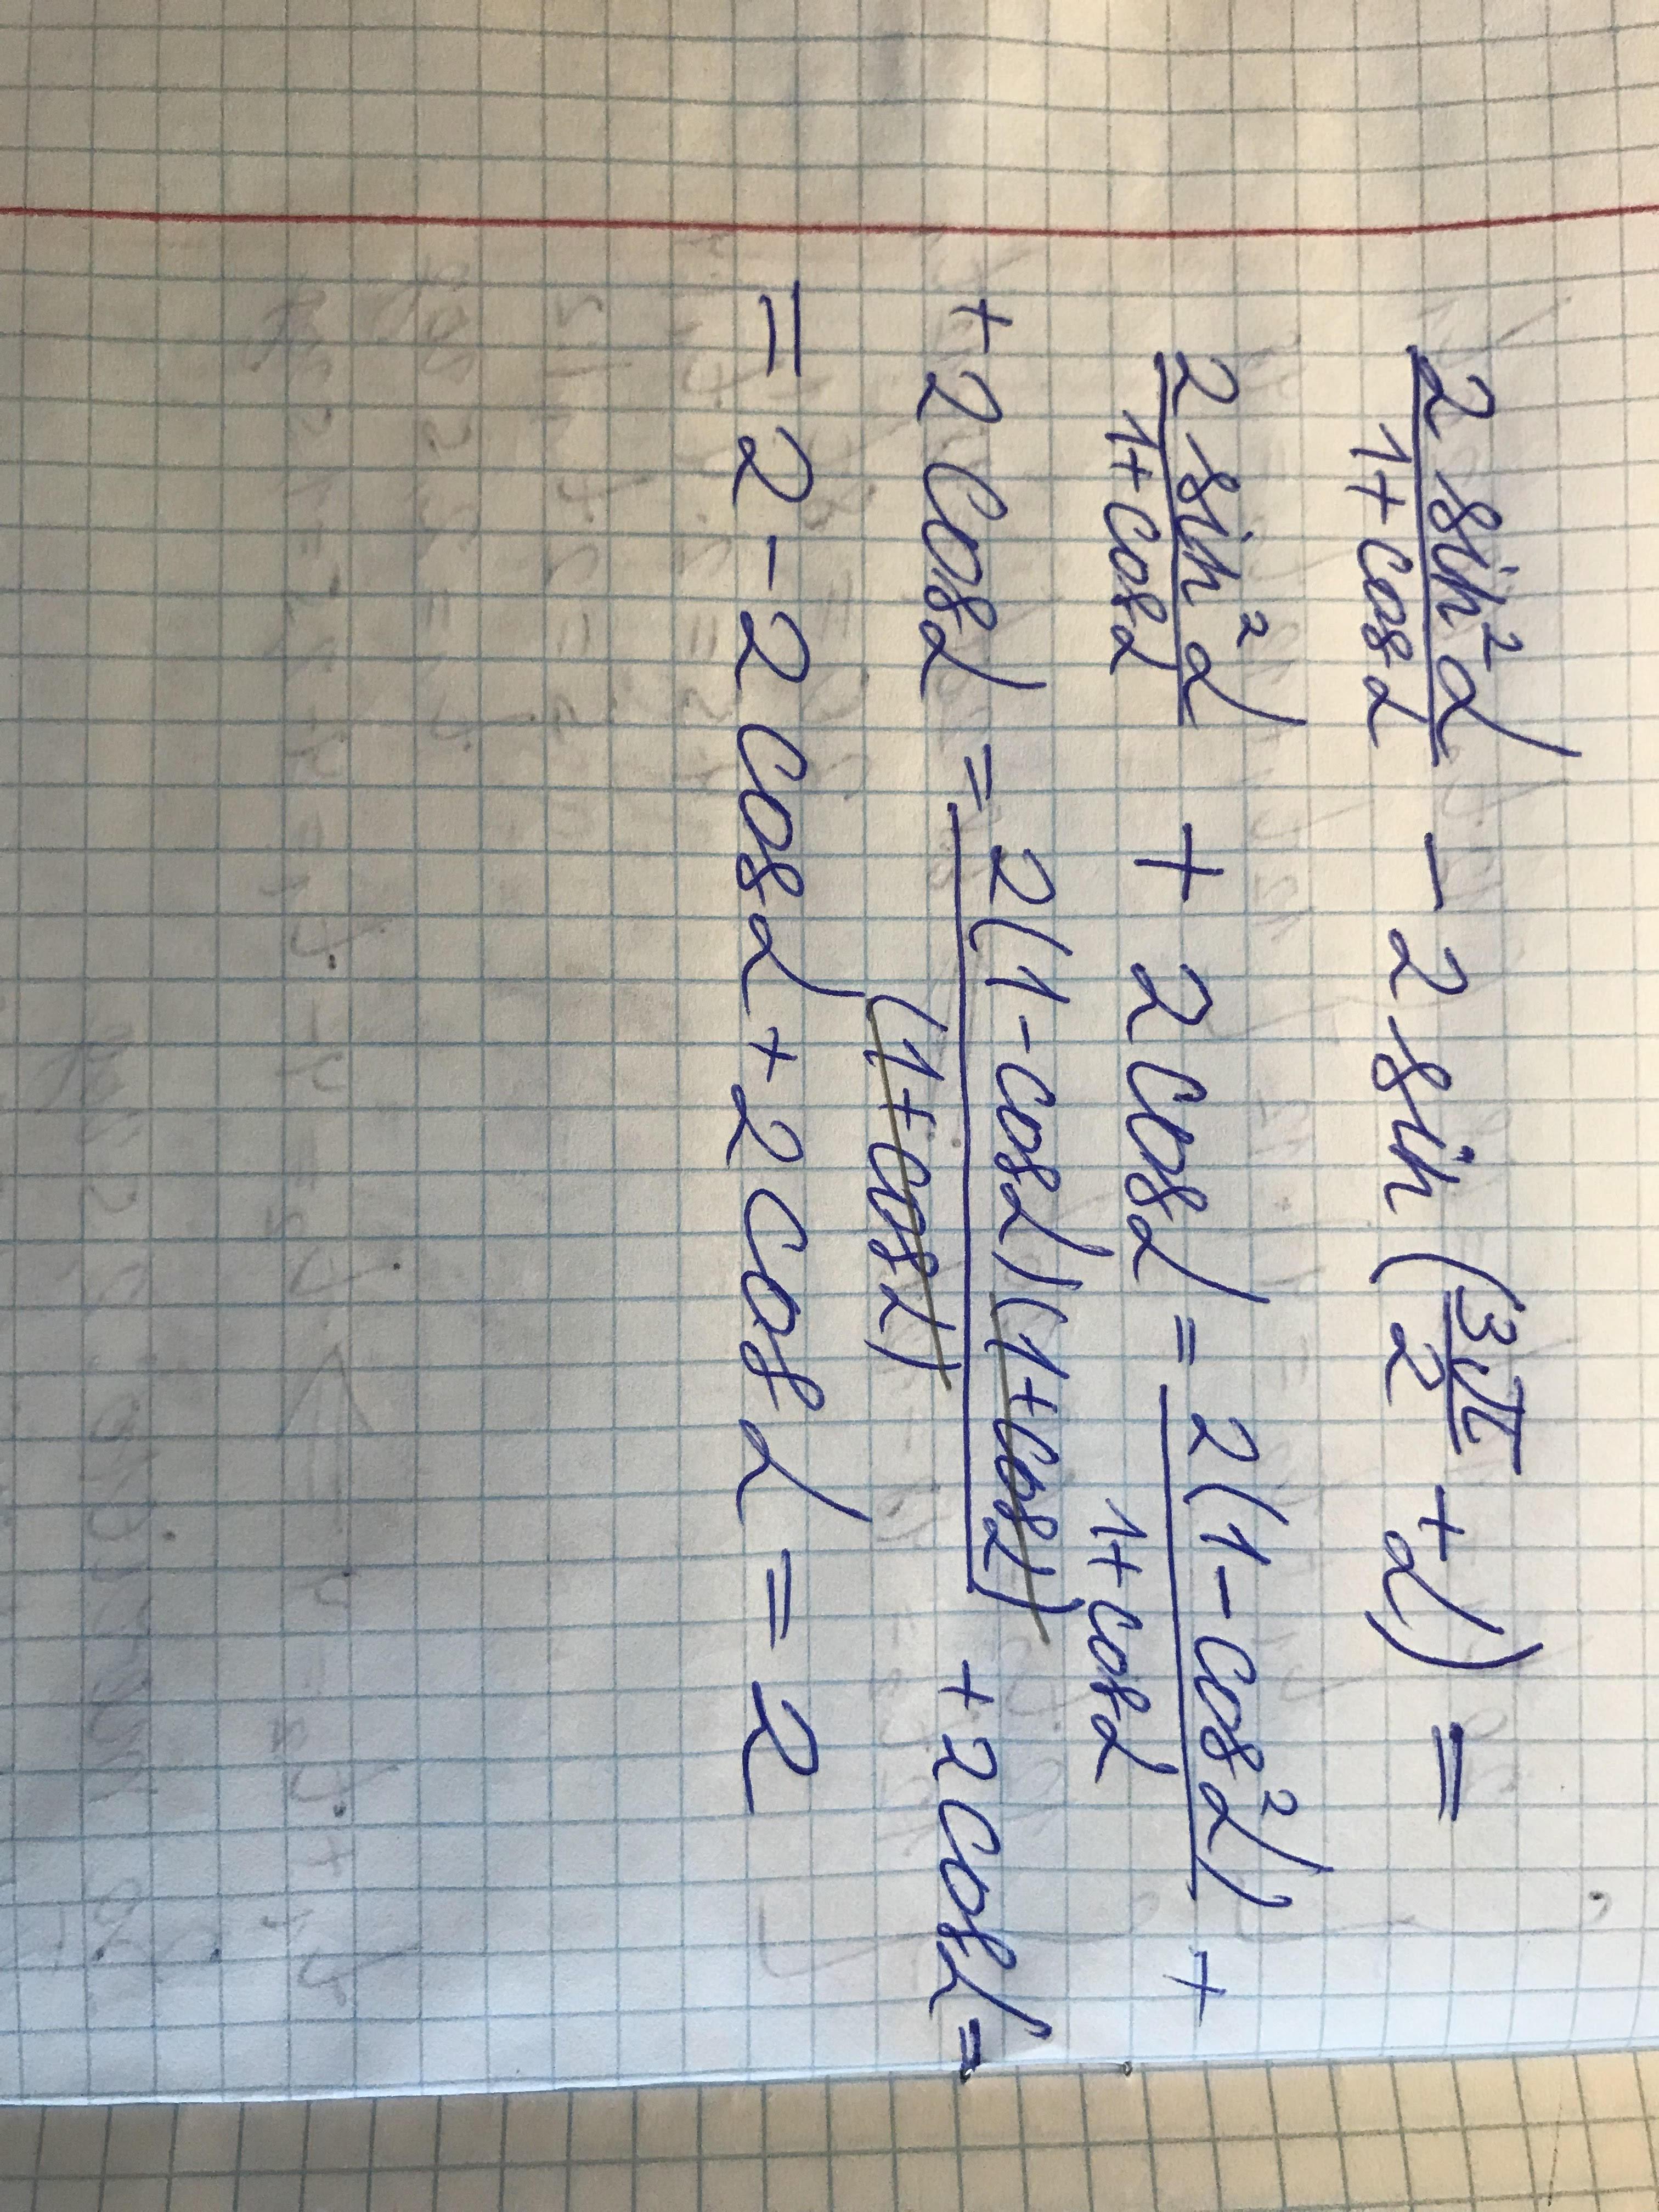 2 sin²α / 1 + cos α − 2 sin (3π/2 + α) =
2 sin²α / 1 + cos α + 2 cos α = 2(1 − cos²α) / 1 + cos α +
+ 2 cos α = 2(1 − cos α)(1 + cos α) / (1 + cos α) + 2 cos α =
= 2 − 2 cos α + 2 cos α = 2